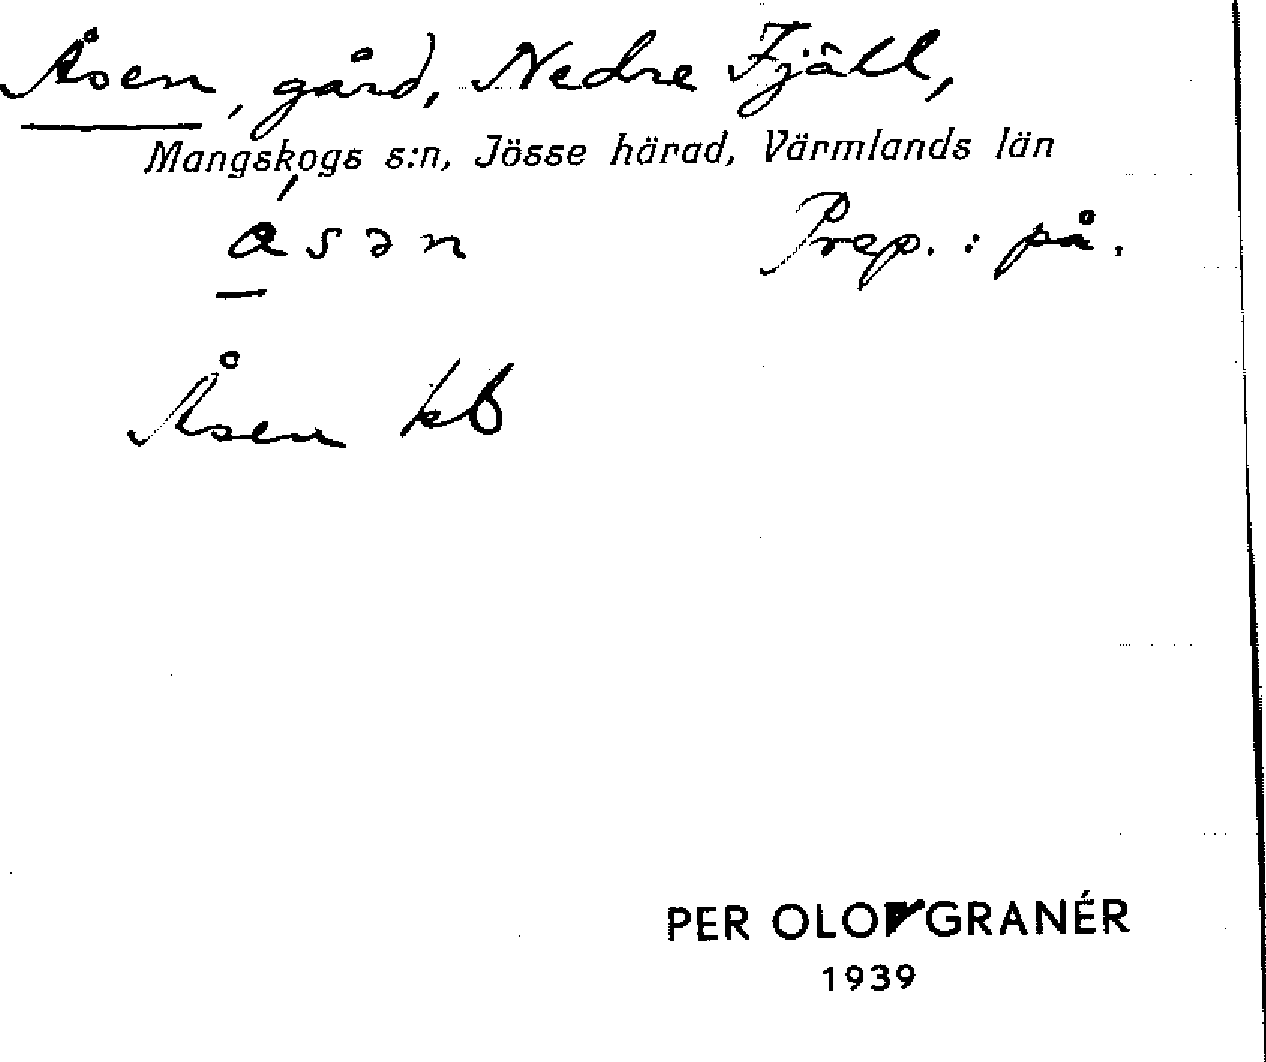 Åsen, gård, Nedre Fjäll,
Mangskogs s:n, Jösse härad, Värmlands län
åsən Prep.: på.
Åsen kb
PER OLOF GRANÉR
1939